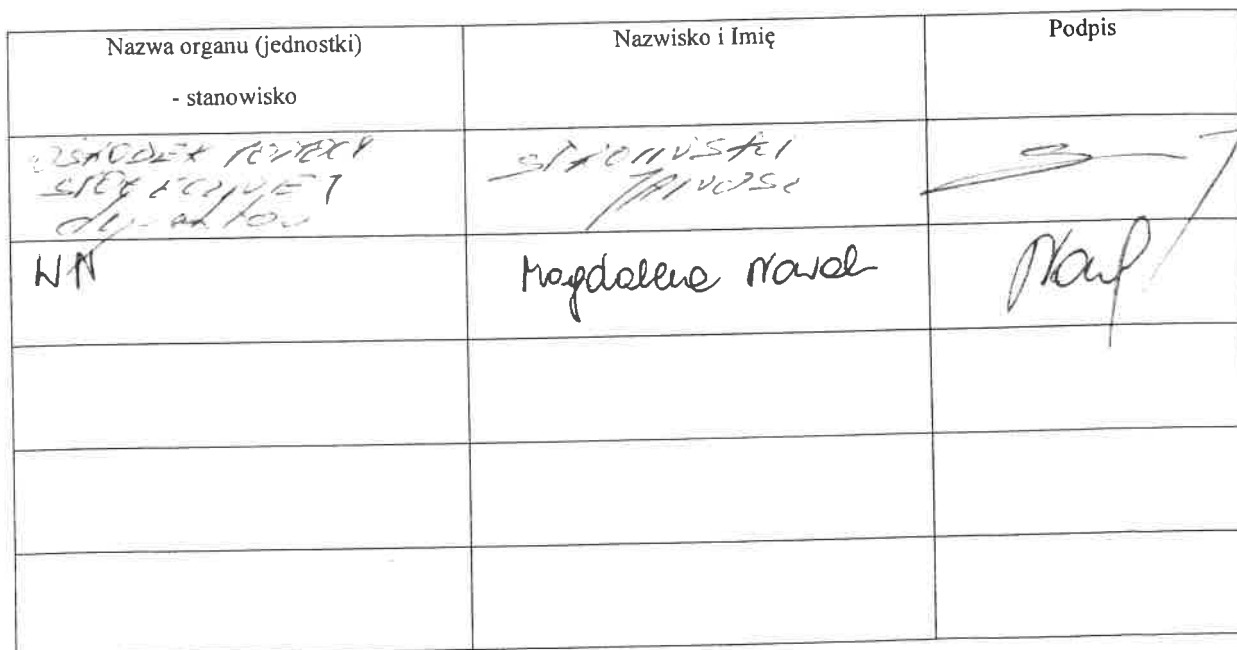 Nazwa organu (jednostki)
- stanowisko
Nazwisko i Imię
Podpis
OŚRODEK POMOCY
SPOŁECZNEJ
dyrektor
JANUSZ
Magdalena Nowak